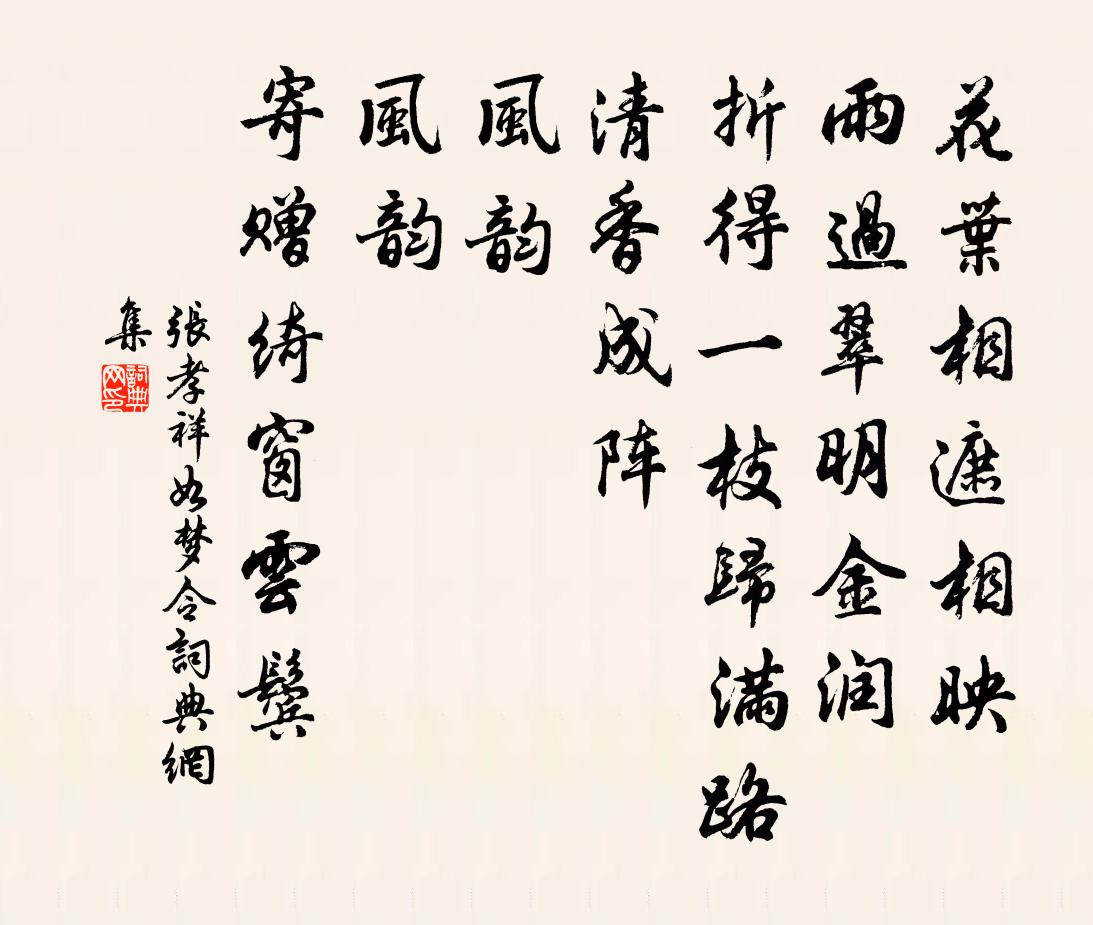 花葉相遮相映
雨過翠明金润
折得一枝歸满路
清香成阵
風韵
風韵
寄赠绮窗雲鬓
張孝祥如梦令詞典網
集
詞典
网印